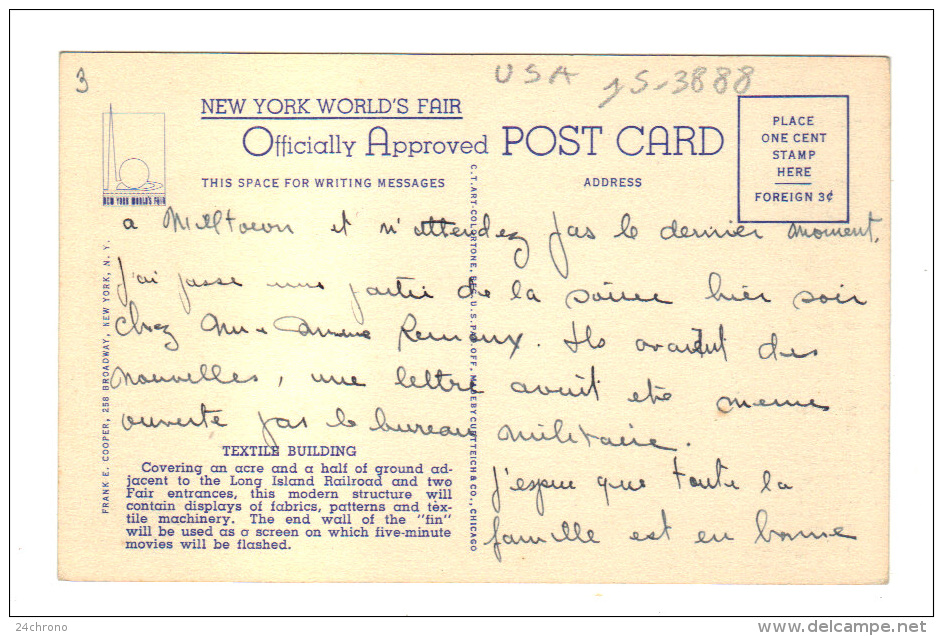 3
USA
JS-3888
NEW YORK WORLD'S FAIR
Officially Approved POST CARD
THIS SPACE FOR WRITING MESSAGES
ADDRESS
PLACE
ONE CENT
STAMP
HERE
FOREIGN 3¢
NEW YORK WORLD'S FAIR
a Milltown et n'attendez pas le dernier moment.
J'ai passe une partie de la soiree hier soir
chez Mr e Mme Remoux. Ils avaient des
nouvelles, une lettre avait eté meme
ouverte pas le bureau militaire.
J'espere que toute la
famille est en bonne
TEXTILE BUILDING
Covering an acre and a half of ground ad-
jacent to the Long Island Railroad and two
Fair entrances, this modern structure will
contain displays of fabrics, patterns and tex-
tile machinery. The end wall of the "fin"
will be used as a screen on which five-minute
movies will be flashed.
FRANK E. COOPER, 258 BROADWAY, NEW YORK, N. Y.
C. T. ART-COLORTONE, REG. U. S. PAT. OFF. MADE BY CURT TEICH & CO., CHICAGO
24chrono
www.delcampe.net